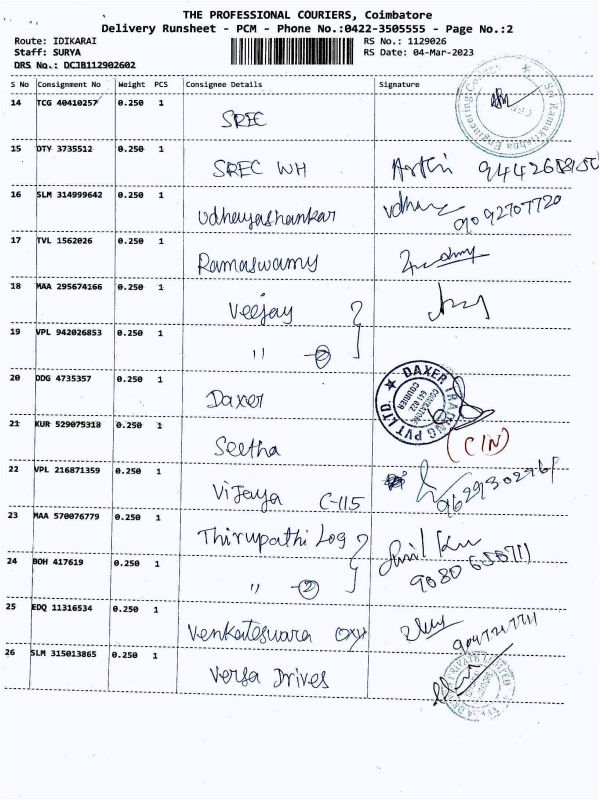 THE PROFESSIONAL COURIERS, Coimbatore
Delivery Runsheet - PCM - Phone No.:0422-3505555 - Page No.:2
Route: IDIKARAI RS No.: 1129026
Staff: SURYA RS Date: 04-Mar-2023
DRS No.: DCJB112902602
S No Consignment No Weight PCS Consignee Details Signature
14 TCG 40410257 0.250 1 SREC
Sri Ramakrishna Engineering College
15 DTY 3735512 0.250 1 SREC WH Arthi
16 SLM 314999642 0.250 1 Udhayashankar 9092707720
17 TVL 1562026 0.250 1 Ramaswamy
18 MAA 295674166 0.250 1 Veejay
19 VPL 942026853 0.250 1 " 2
20 DDG 4735357 0.250 1 Daxer
DAXER TRADING PVT LTD
COIMBATORE
641 022
COURIER
21 KUR 529075318 0.250 1 Seetha (CIN)
22 VPL 216871359 0.250 1 Vijaya C-115
23 MAA 570076779 0.250 1 Thirupathi Log
24 BOH 417619 0.250 1 " 2
25 EDQ 11316534 0.250 1 Venkateswara oxy
26 SLM 315013865 0.250 1 Versa Drives